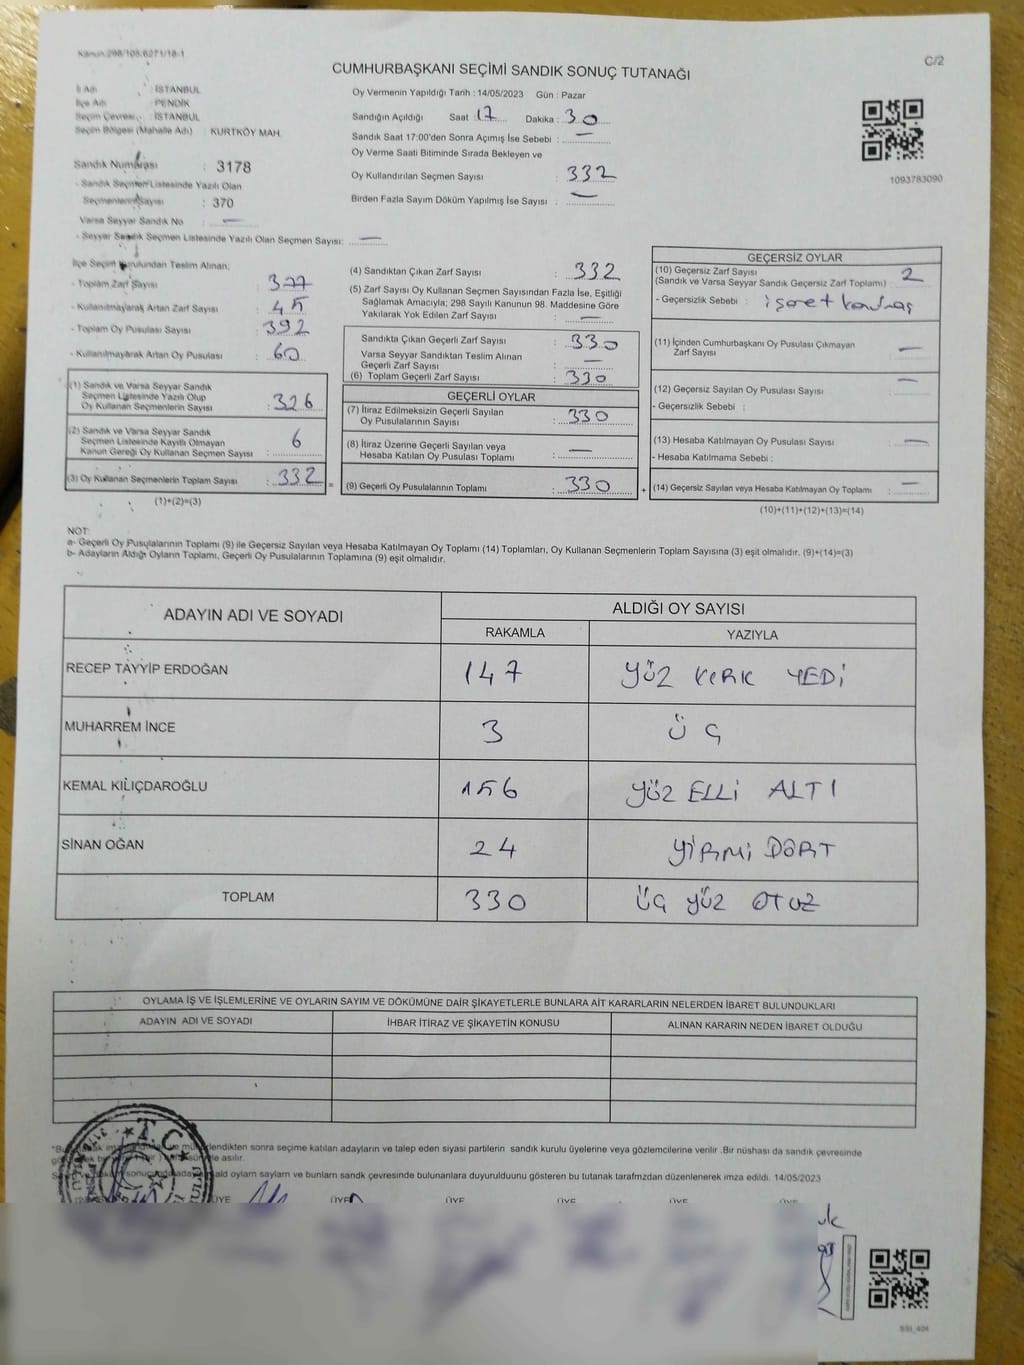 Kanun:298/105;6271/18-1
C/2
CUMHURBAŞKANI SEÇİMİ SANDIK SONUÇ TUTANAĞI
İl Adı : İSTANBUL
İlçe Adı : PENDİK
Seçim Çevresi : İSTANBUL
Seçim Bölgesi (Mahalle Adı) : KURTKÖY MAH.
Sandık Numarası : 3178
- Sandık Seçmen Listesinde Yazılı Olan
Seçmenlerin Sayısı : 370
Varsa Seyyar Sandık No : —
- Seyyar Sandık Seçmen Listesinde Yazılı Olan Seçmen Sayısı: —
Oy Vermenin Yapıldığı Tarih : 14/05/2023 Gün : Pazar
Sandığın Açıldığı Saat : 17 Dakika : 30
Sandık Saat 17:00'den Sonra Açımış İse Sebebi : —
Oy Verme Saati Bitiminde Sırada Bekleyen ve
Oy Kullandırılan Seçmen Sayısı : 332
Birden Fazla Sayım Döküm Yapılmış İse Sayısı : —
1093783090
İlçe Seçim Kurulundan Teslim Alınan;
- Toplam Zarf Sayısı : 377
- Kullanılmayarak Artan Zarf Sayısı : 45
- Toplam Oy Pusulası Sayısı : 392
- Kullanılmayarak Artan Oy Pusulası : 60
(1) Sandık ve Varsa Seyyar Sandık
Seçmen Listesinde Yazılı Olup
Oy Kullanan Seçmenlerin Sayısı : 326
(2) Sandık ve Varsa Seyyar Sandık
Seçmen Listesinde Kayıtlı Olmayan
Kanun Gereği Oy Kullanan Seçmen Sayısı : 6
(3) Oy Kullanan Seçmenlerin Toplam Sayısı : 332 =
(1)+(2)=(3)
(4) Sandıktan Çıkan Zarf Sayısı : 332
(5) Zarf Sayısı Oy Kullanan Seçmen Sayısından Fazla İse, Eşitliği
Sağlamak Amacıyla; 298 Sayılı Kanunun 98. Maddesine Göre
Yakılarak Yok Edilen Zarf Sayısı : —
Sandıkta Çıkan Geçerli Zarf Sayısı : 330
Varsa Seyyar Sandıktan Teslim Alınan
Geçerli Zarf Sayısı : —
(6) Toplam Geçerli Zarf Sayısı : 330
GEÇERLİ OYLAR
(7) İtiraz Edilmeksizin Geçerli Sayılan
Oy Pusulalarının Sayısı : 330
(8) İtiraz Üzerine Geçerli Sayılan veya
Hesaba Katılan Oy Pusulası Toplamı : —
(9) Geçerli Oy Pusulalarının Toplamı : 330 +
GEÇERSİZ OYLAR
(10) Geçersiz Zarf Sayısı : 2
(Sandık ve Varsa Seyyar Sandık Geçersiz Zarf Toplamı)
- Geçersizlik Sebebi :
(11) İçinden Cumhurbaşkanı Oy Pusulası Çıkmayan
Zarf Sayısı : —
(12) Geçersiz Sayılan Oy Pusulası Sayısı : —
- Geçersizlik Sebebi :
(13) Hesaba Katılmayan Oy Pusulası Sayısı : —
- Hesaba Katılmama Sebebi :
(14) Geçersiz Sayılan veya Hesaba Katılmayan Oy Toplamı : —
(10)+(11)+(12)+(13)=(14)
NOT:
a- Geçerli Oy Pusulalarının Toplamı (9) ile Geçersiz Sayılan veya Hesaba Katılmayan Oy Toplamı (14) Toplamları, Oy Kullanan Seçmenlerin Toplam Sayısına (3) eşit olmalıdır. (9)+(14)=(3)
b- Adayların Aldığı Oyların Toplamı, Geçerli Oy Pusulalarının Toplamına (9) eşit olmalıdır.
ADAYIN ADI VE SOYADI ALDIĞI OY SAYISI
RAKAMLA YAZIYLA
RECEP TAYYİP ERDOĞAN 147 YÜZ KIRK YEDİ
MUHARREM İNCE 3 ÜÇ
KEMAL KILIÇDAROĞLU 156 YÜZ ELLİ ALTI
SİNAN OĞAN 24 YİRMİ DÖRT
TOPLAM 330 ÜÇ YÜZ OTUZ
OYLAMA İŞ VE İŞLEMLERİNE VE OYLARIN SAYIM VE DÖKÜMÜNE DAİR ŞİKAYETLERLE BUNLARA AİT KARARLARIN NELERDEN İBARET BULUNDUKLARI
ADAYIN ADI VE SOYADI İHBAR İTİRAZ VE ŞİKAYETİN KONUSU ALINAN KARARIN NEDEN İBARET OLDUĞU
sonra seçime katılan adayların ve talep eden siyasi partilerin sandık kurulu üyelerine veya gözlemcilerine verilir .Bir nüshası da sandık çevresinde
asılır.
oyların sayısını ve bunların sandık çevresinde bulunanlara duyurulduğunu gösteren bu tutanak tarafımızdan düzenlenerek imza edildi. 14/05/2023
T.C
ÜYE ÜYE ÜYE ÜYE ÜYE ÜYE